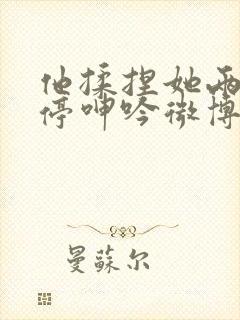 他揉捏她两
停呻吟微博
曼蘇尔